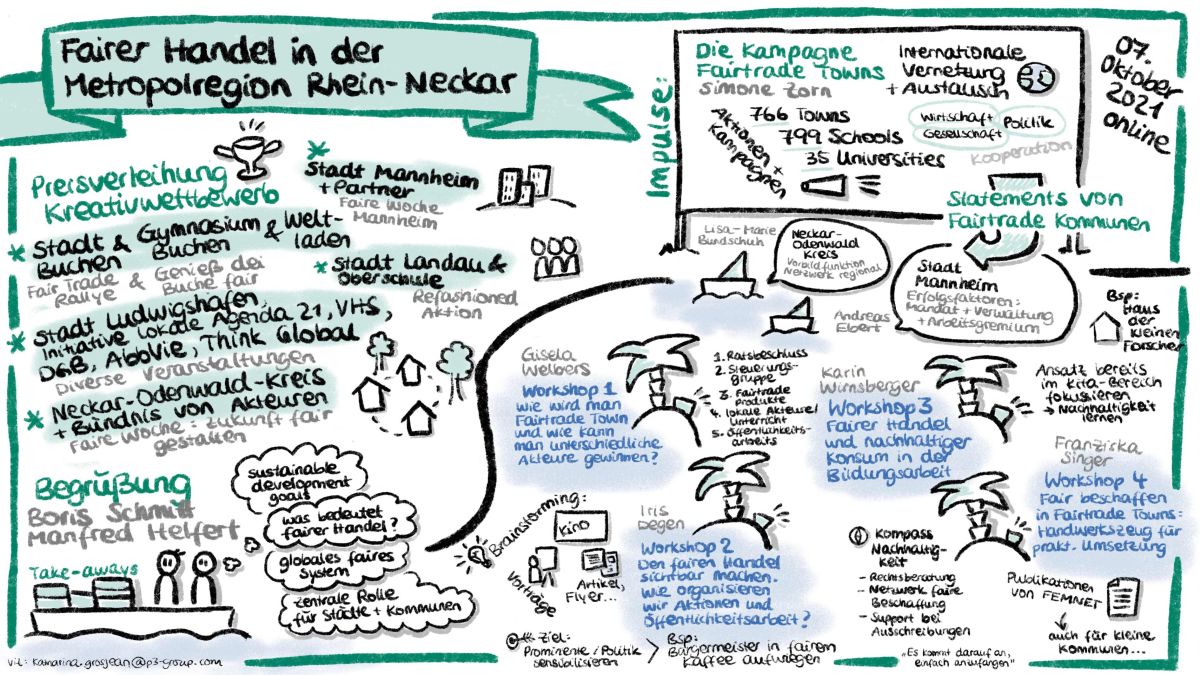 Fairer Handel in der
Metropolregion Rhein-Neckar
Preisverleihung
Kreativwettbewerb
* Stadt & Gymnasium & Welt-
Buchen Buchen laden
Fair Trade & Genieß dei
Rallye & Buche fair
* Stadt Ludwigshafen,
Initiative Lokale Agenda 21, VHS,
DGB, AbbVie, Think Global
Diverse Veranstaltungen
* Neckar-Odenwald-Kreis
+ Bündnis von Akteuren
Faire Woche: Zukunft fair
gestalten
* Stadt Mannheim
+ Partner
Faire Woche
Mannheim
* Stadt Landau &
Oberschule
Refashioned
Aktion
Begrüßung
Boris Schmitt
Manfred Helfert
Take-aways
sustainable
development
goals
was bedeutet
fairer Handel?
globales faires
System
zentrale Rolle
für Städte + Kommunen
viz: katharina.grosjean@p3-group.com
Impulse:
Die Kampagne
Fairtrade Towns
Simone Zorn
766 Towns
799 Schools
35 Universities
Aktionen +
Kampagnen
Internationale
Vernetzung
+ Austausch
Wirtschaft
Politik
Gesellschaft
Kooperation
07.
Oktober
2021
online
Statements von
Fairtrade Kommunen
Lisa-Marie
Bundschuh
Neckar-
Odenwald
Kreis
Vorbildfunktion
Netzwerk regional
Andreas
Ebert
Stadt
Mannheim
Erfolgsfaktoren:
Mandat + Verwaltung
+ Arbeitsgremium
Gisela
Welbers
Workshop 1
wie wird man
Fairtrade Town
und wie kann
man unterschiedliche
Akteure gewinnen?
1. Ratsbeschluss
2. Steuerungs-
gruppe
3. Fairtrade
Produkte
4. lokale Akteure/
unterricht
5. Öffentlichkeits-
arbeits
Karin
Wirnsberger
Workshop 3
Fairer Handel
und nachhaltiger
Konsum in der
Bildungsarbeit
Bsp:
Haus
der
kleinen
Forscher
Ansatz bereits
im Kita-Bereich
fokussieren
→ Nachhaltigkeit
lernen
Brainstorming:
Kino
Vorträge
Artikel,
Flyer...
Iris
Degen
Workshop 2
Den fairen Handel
sichtbar machen.
Wie organisieren
wir Aktionen und
Öffentlichkeitsarbeit?
Ziel:
Prominente / Politik
sensibilisieren
> Bsp:
Bürgermeister in fairem
Kaffee aufwiegen
Franziska
Singer
Workshop 4
Fair beschaffen
in Fairtrade Towns:
Handwerkszeug für
prakt. Umsetzung
Kompass
Nachhaltig-
keit
- Rechtsberatung
- Netzwerk faire
Beschaffung
- Support bei
Ausschreibungen
Publikationen
von FEMNET
auch für kleine
Kommunen...
„Es kommt darauf an,
einfach anzufangen"